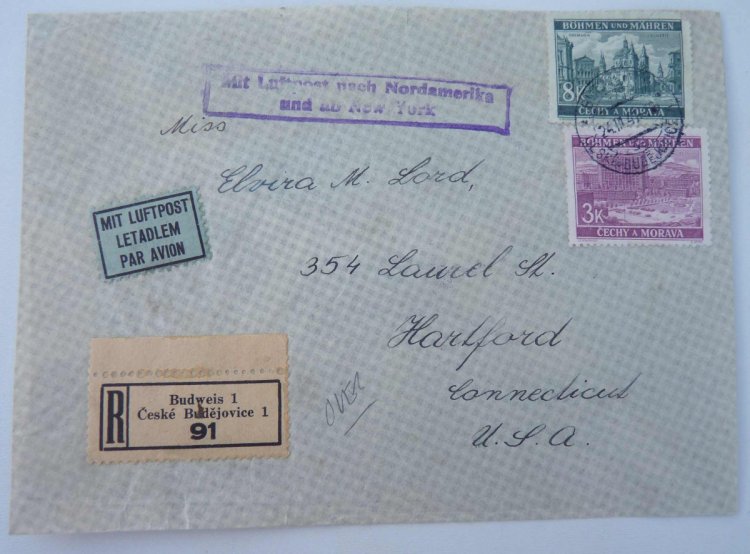 BÖHMEN UND MÄHREN
8K
ČECHY A MORAVA
BÖHMEN UND MÄHREN
3K
ČECHY A MORAVA
Mit Luftpost nach Nordamerika
und ab New York
Miss
Elvira M. Lord,
354 Laurel St.
Hartford
Connecticut
U.S.A.
MIT LUFTPOST
LETADLEM
PAR AVION
R
Budweis 1
České Budějovice 1
91
over